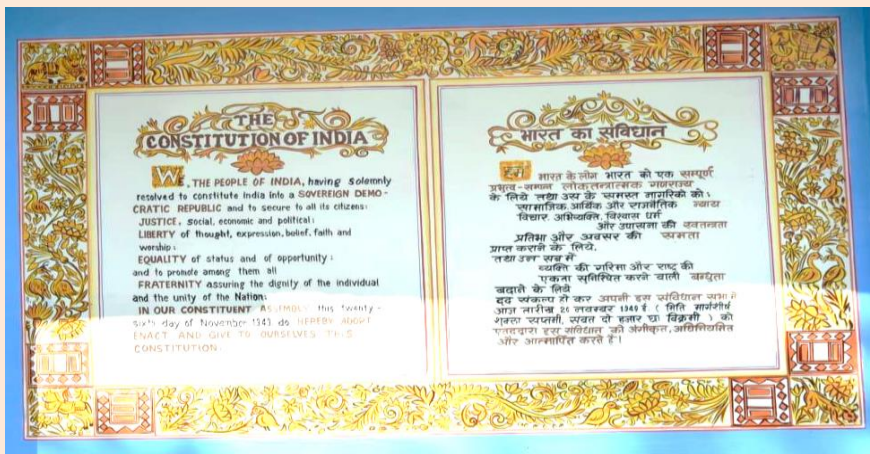 THE
CONSTITUTION OF INDIA
WE, THE PEOPLE OF INDIA, having solemnly
resolved to constitute India into a SOVEREIGN DEMO-
CRATIC REPUBLIC and to secure to all its citizens:
JUSTICE, social, economic and political;
LIBERTY of thought, expression, belief, faith and
worship;
EQUALITY of status and of opportunity;
and to promote among them all
FRATERNITY assuring the dignity of the individual
and the unity of the Nation;
IN OUR CONSTITUENT ASSEMBLY this twenty-
sixth day of November 1949 do HEREBY ADOPT
ENACT AND GIVE TO OURSELVES THIS
CONSTITUTION.
भारत का संविधान
हम भारत के लोग भारत को एक सम्पूर्ण
प्रभुत्व-सम्पन्न लोकतन्त्रात्मक गणराज्य
के लिये तथा उस के समस्त नागरिकों को:
सामाजिक, आर्थिक और राजनैतिक न्याय
विचार, अभिव्यक्ति, विश्वास धर्म
और उपासना की स्वतन्त्रता
प्रतिष्ठा और अवसर की समता
प्राप्त कराने के लिये,
तथा उन सब में
व्यक्ति की गरिमा और राष्ट्र की
एकता सुनिश्चित करने वाली बन्धुता
बढ़ाने के लिये
दृढ़ संकल्प हो कर अपनी इस संविधान सभा में
आज तारीख 26 नवम्बर 1949 ई. ( मिति मार्गशीर्ष
शुक्ला सप्तमी, संवत दो हजार छः विक्रमी ) को
एतद्द्वारा इस संविधान को अंगीकृत, अधिनियमित
और आत्मार्पित करते हैं।